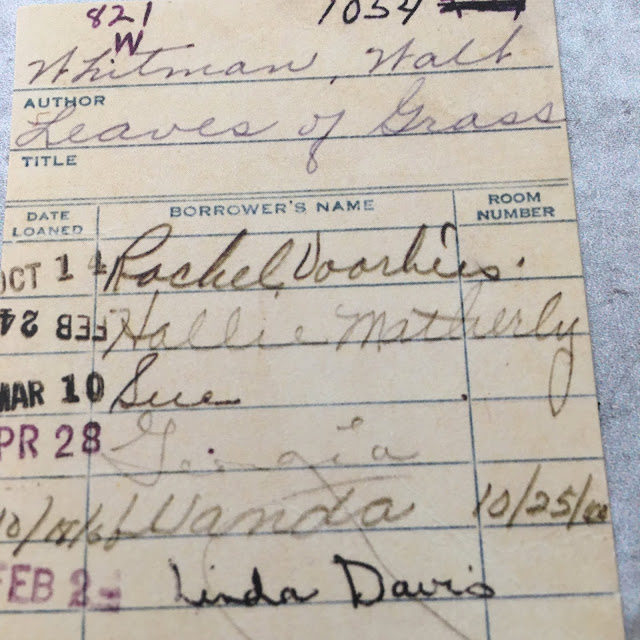 821 1054
W
Whitman, Walt
AUTHOR
Leaves of Grass
TITLE
DATE LOANED BORROWER'S NAME ROOM NUMBER
OCT 14 Rachel Voorhies.
FEB 24 Hallie Matherly
MAR 10 Sue
PR 28 Georgia
Wanda 10/25/
FEB 2 Linda Davis